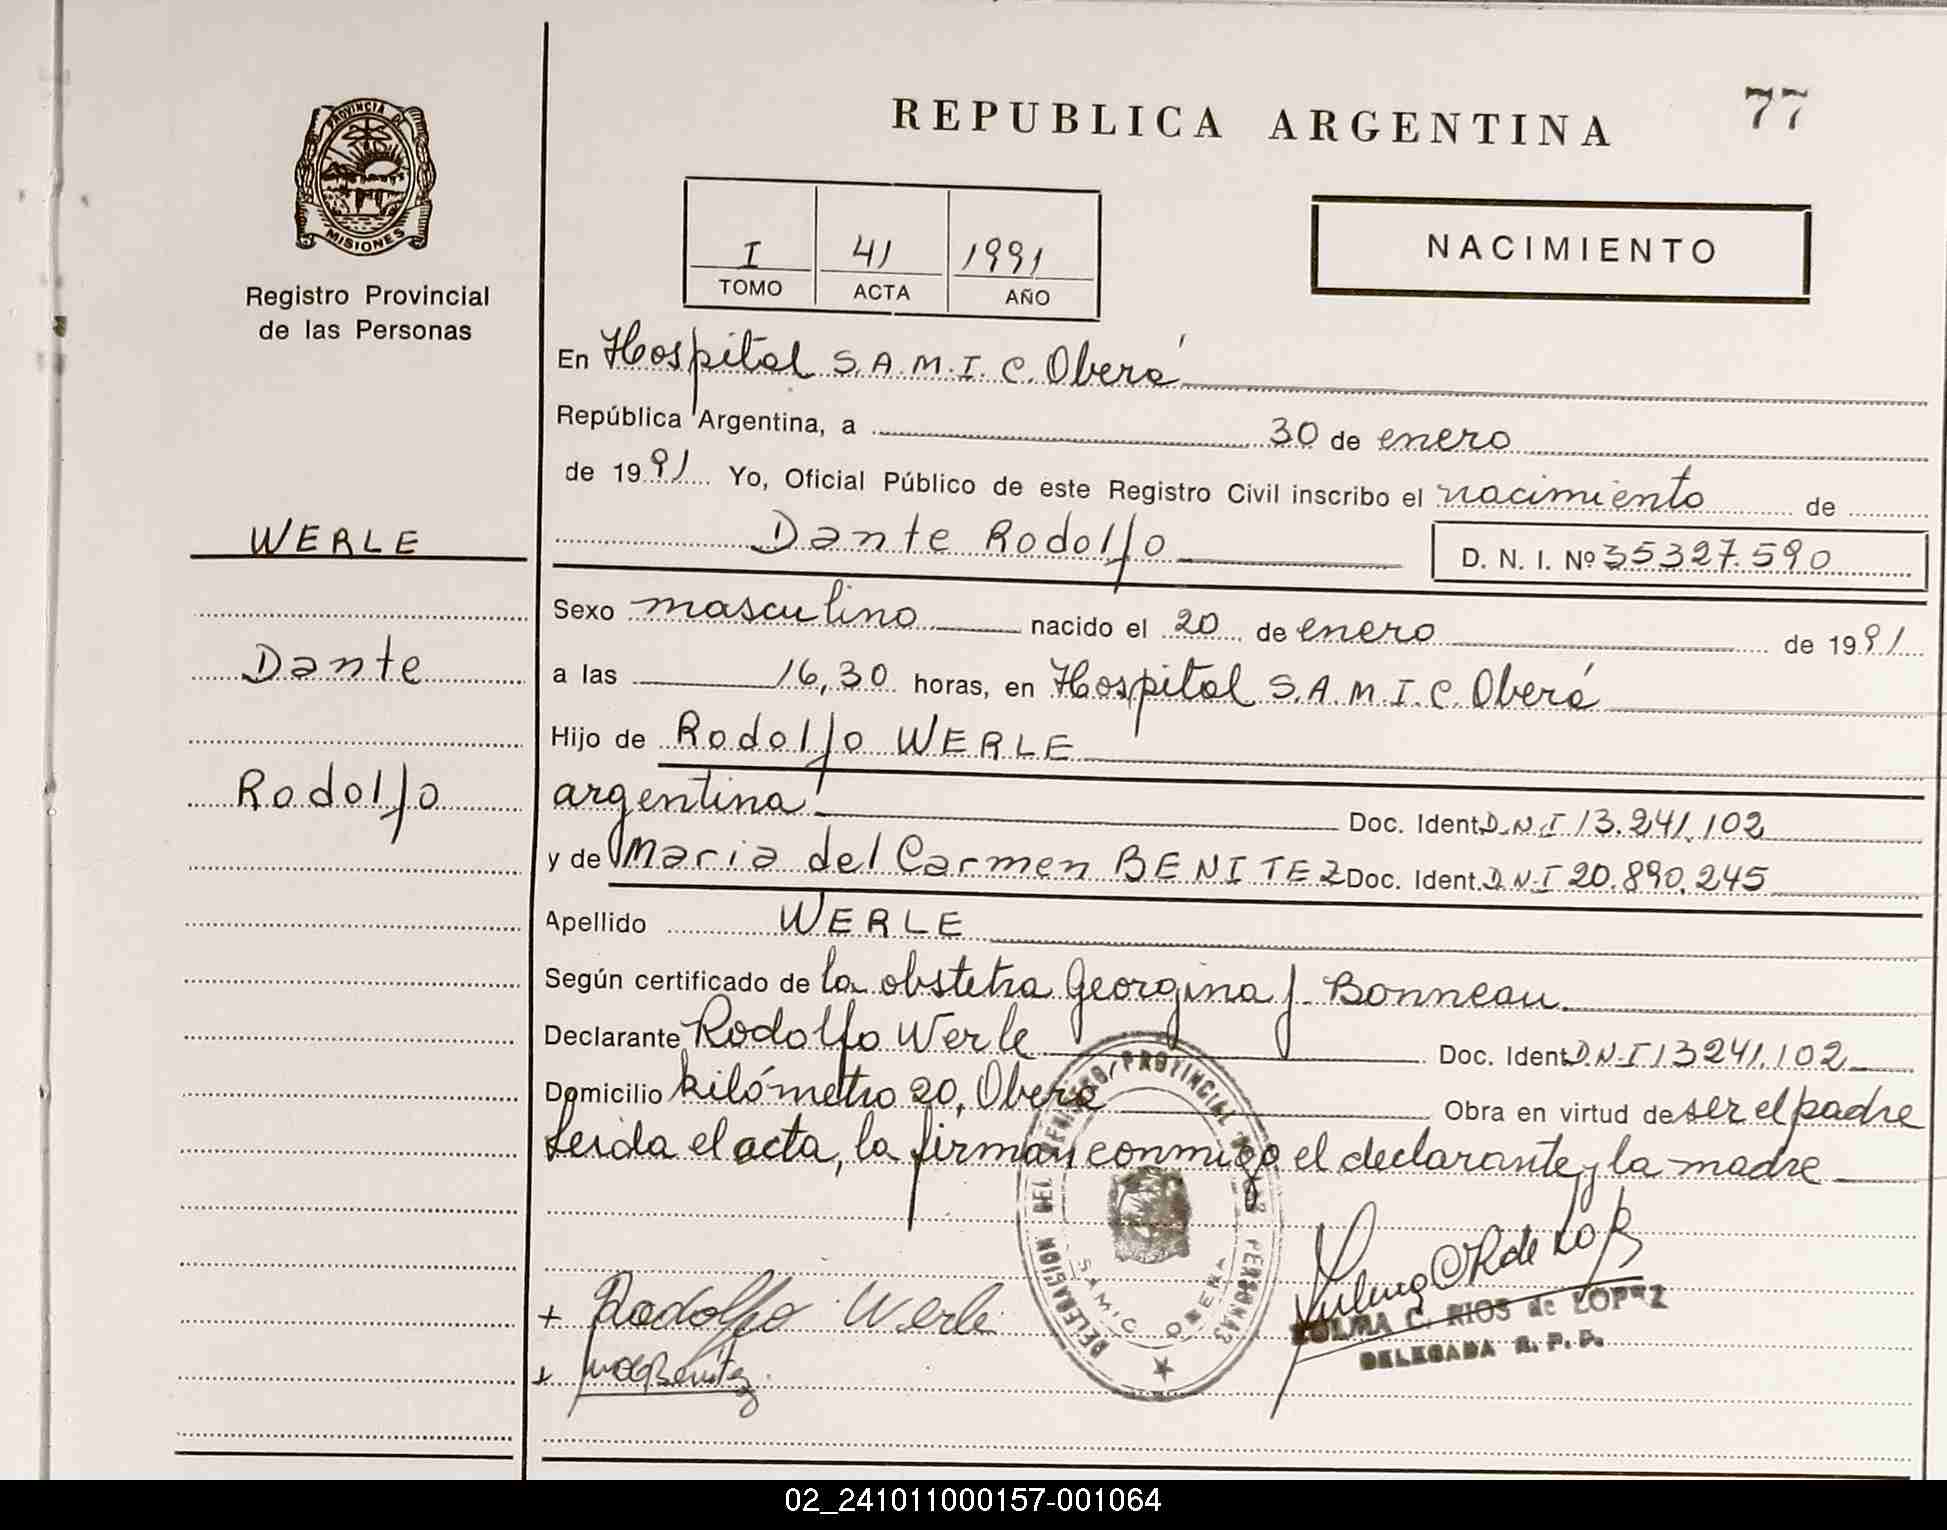 77
REPUBLICA ARGENTINA
PROVINCIA DE
MISIONES
Registro Provincial
de las Personas
NACIMIENTO
I 41 1991
TOMO ACTA AÑO
En Hospital S.A.M.I.C. Oberá
República Argentina, a 30 de enero
de 1991 Yo, Oficial Público de este Registro Civil inscribo el nacimiento de
WERLE
Dante Rodolfo D. N. I. Nº 35327.590
Sexo masculino nacido el 20 de enero de 1991
Dante
a las 16,30 horas, en Hospital S.A.M.I.C. Oberá
Hijo de Rodolfo WERLE
Rodolfo
argentina Doc. Ident. D.N.I 13.241.102
y de Maria del Carmen BENITEZ Doc. Ident. D.N.I 20.890.245
Apellido WERLE
Según certificado de la obstetra Georgina J. Bonneau
Declarante Rodolfo Werle Doc. Ident. D.N.I 13241.102
Domicilio kilómetro 20, Oberá Obra en virtud de ser el padre
Leida el acta, la firman conmigo el declarante y la madre
DELEGACION DEL REGISTRO PROVINCIAL DE LAS PERSONAS
SAMIC OBERA
Rodolfo Werle
ZULMA C. RIOS de LOPEZ
DELEGADA R. P. P.
02_241011000157-001064